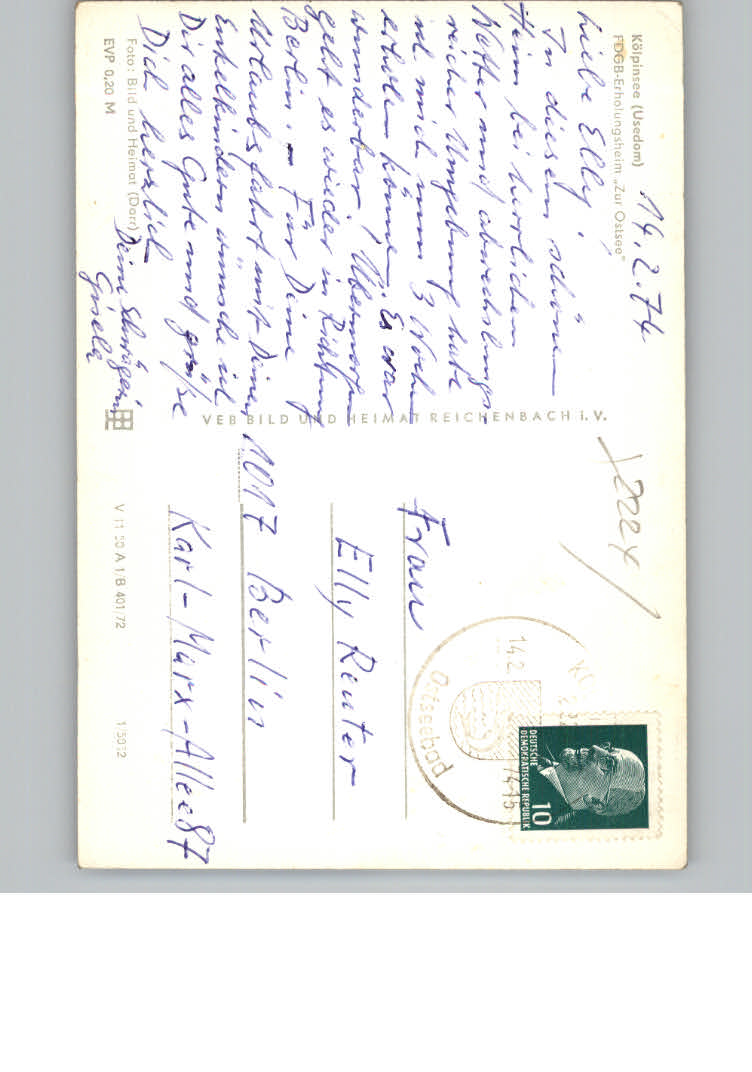 Kölpinsee (Usedom)
FDGB-Erholungsheim „Zur Ostsee"
14.2.74
Liebe Elly!
In diesem schönen
Heim bei herrlichem
Wetter und abwechslungs-
reicher Umgebung habe
ich mich nun 3 Wochen
erholen können. Es war
wunderbar. Übermorgen
geht es wieder in Richtung
Berlin. – Für Deine
Urlaubsfahrt mit Deinen
Enkelkindern wünsche ich
Dir alles Gute und grüße
Dich herzlich
Deine Schwägerin
Gisela
Foto: Bild und Heimat (Dorr)
EVP 0,20 M
VEB BILD UND HEIMAT REICHENBACH i. V.
V 11 50 A 1/B 401/72
Frau
Elly Reuter
1017 Berlin
Karl-Marx-Allee 87
14.2
74-15
Ostseebad
DEUTSCHE
DEMOKRATISCHE REPUBLIK
10